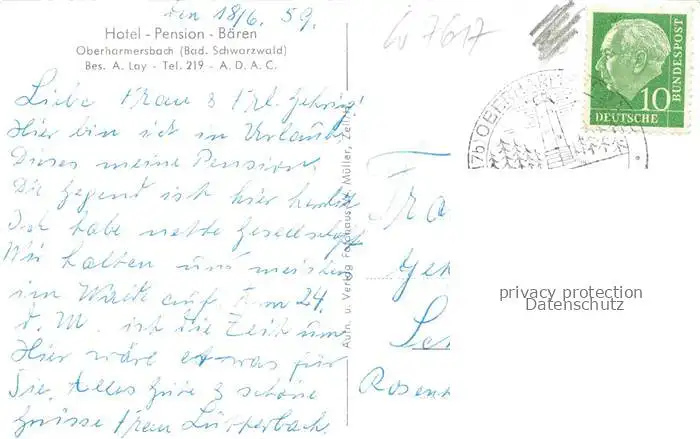 den 18/6. 59.
Hotel - Pension - Bären
Oberharmersbach (Bad. Schwarzwald)
Bes. A. Lay - Tel. 219 - A. D. A. C.
Liebe Frau & Frl. Gehrig!
Hier bin ich in Urlaub
Dieses meine Pension.
Die Gegend ist hier herrlich
Ich habe nette Gesellschaft
Wir halten uns meisten
im Walde auf. Am 24.
d. M. ist die Zeit um
Hier wäre etwas für
Sie. Alles Gute & schöne
Grüsse Frau Lütterbach.
Aufn. u. Verlag Müller, Zell
7617
DEUTSCHE
BUNDESPOST
10
(17b) OBERH
Fra
Geh
Rosen
privacy protection
Datenschutz